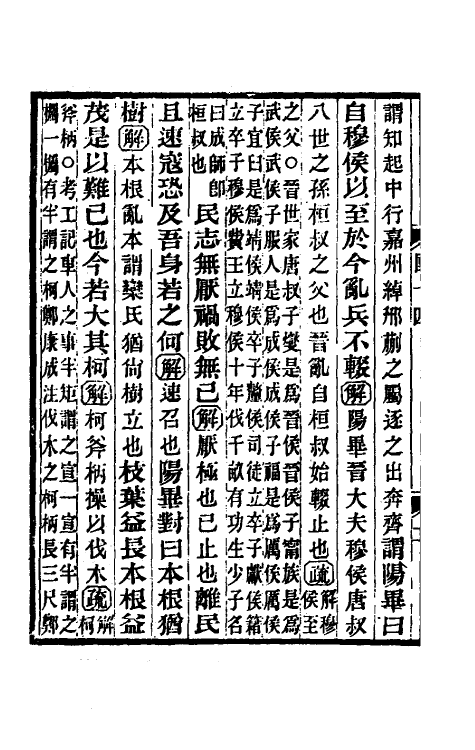 謂知起中行嘉州綽邢蒯之屬逐之出奔齊謂陽畢曰
自穆侯以至於今亂兵不輟解陽畢晉大夫穆侯唐叔
八世之孫桓叔之父也晉亂自桓叔始輟止也疏解穆
侯至
之父○晉世家唐叔子燮是爲晉侯晉侯子甯族是爲
武侯武侯子服人是爲成侯成侯子福是爲厲侯厲侯
子宜臼是爲靖侯靖侯卒子釐侯司徒立卒子獻侯籍
立卒子穆侯費王立穆侯十年伐千畝有功生少子名
曰成師卽
桓叔也
民志無厭禍敗無已解厭極也已止也離民
且速寇恐及吾身若之何解速召也陽畢對曰本根猶
樹解本根亂本謂欒氏猶尙樹立也枝葉益長本根益
茂是以難已也今若大其柯解柯斧柄操以伐木疏解
柯
斧柄○考工記車人之事半矩謂之宣一宣有半謂之
欘一欘有半謂之柯鄭康成注伐木之柯柄長三尺鄭